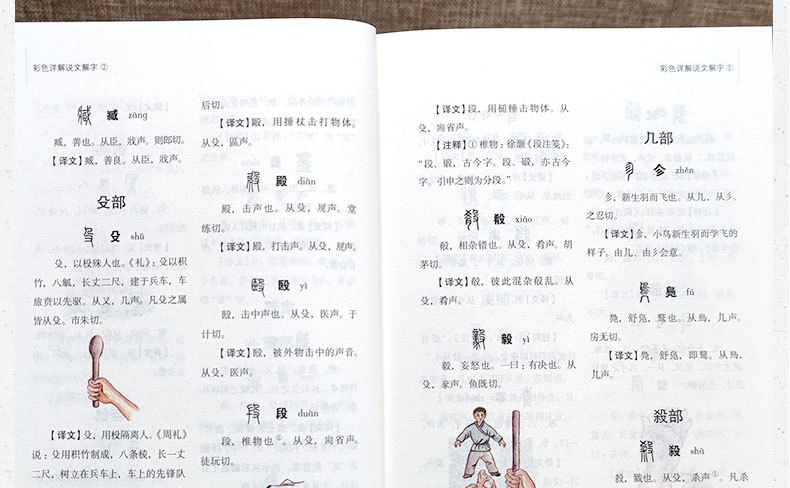 彩色详解说文解字②
臧 zāng
臧，善也。从臣，戕声。则郎切。
【译文】臧，善良。从臣，戕声。
殳部
殳 shū
殳，以杸殊人也。《礼》：殳以积
竹，八觚，长丈二尺，建于兵车，车
旅贲以先驱。从又，几声。凡殳之属
皆从殳。市朱切。
【译文】殳，用杸隔离人。《周礼》
说：殳用积竹制成，八条棱，长一丈
二尺，树立在兵车上，车上的先锋队
后切。
【译文】殴，用捶杖击打物体。
从殳，區声。
殿 diàn
殿，击声也。从殳，𡱒声。堂
练切。
【译文】殿，打击声。从殳，𡱒声。
殹 yì
殹，击中声也。从殳，医声。于
计切。
【译文】殹，被外物击中的声音。
从殳，医声。
段 duàn
段，椎物也①。从殳，耑省声。
徒玩切。
彩色详解说文解字②
【译文】段，用槌棰击物体。从
殳，耑省声。
【注释】①椎物：徐灏《段注笺》：
“段、碫，古今字。段、碫，亦古今
字。引申之则为分段。”
殽 xiáo
殽，相杂错也。从殳，肴声。胡
茅切。
【译文】殽，彼此混杂殽乱。从
殳，肴声。
毅 yì
毅，妄怒也。一曰：有决也。从
殳，豙声。鱼既切。
几部
㐱 zhěn
㐱，新生羽而飞也。从几，从彡。
之忍切。
【译文】㐱，小鸟新生羽而学飞的
样子。由几、由彡会意。
鳧 fú
鳧，舒凫，鹜也。从鳥，几声。
房无切。
【译文】凫，舒凫，即鹜。从鳥，
几声。
殺部
殺 shā
殺，戮也。从殳，杀声①。凡杀